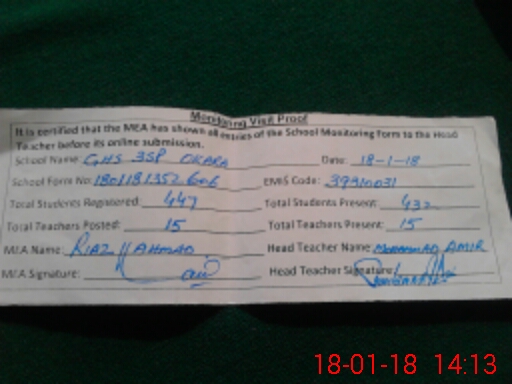 Monitoring Visit Proof
It is certified that the MEA has shown all entries of the School Monitoring Form to the Head
Teacher before its online submission.
School Name: GHS 3SP OKARA Date: 18-1-18
School Form No: 1801181352606 EMIS Code: 39310031
Total Students Registered: 447 Total Students Present: 432
Total Teachers Posted: 15 Total Teachers Present: 15
MEA Name: RIAZ AHMAD Head Teacher Name: MOHAMMAD AMIR
MEA Signature: Head Teacher Signature:
18-01-18 14:13